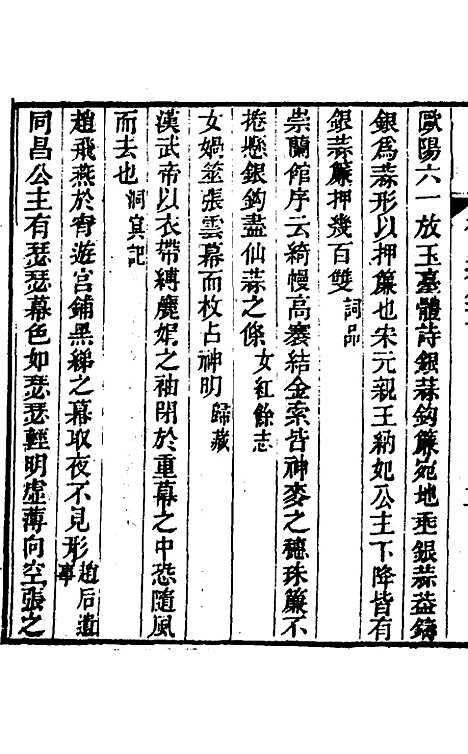 歐陽六一放玉臺體詩銀蒜鈎簾宛地垂銀蒜葢鑄
銀爲蒜形以押簾也宋元親王納妃公主下降皆有
銀蒜簾押幾百雙 詞品
崇蘭館序云綺幔高褰結金索皆神麥之穗珠簾不
捲懸銀鈎盡仙蒜之條 女紅餘志
女媧筮張雲幕而枚占神明 歸藏
漢武帝以衣帶縛麗娟之袖閉於重幕之中恐隨風
而去也 洞冥記
趙飛燕於宵遊宮鋪黑綈之幕取夜不見形 趙后遺事
同昌公主有瑟瑟幕色如瑟瑟輕明虛薄向空張之